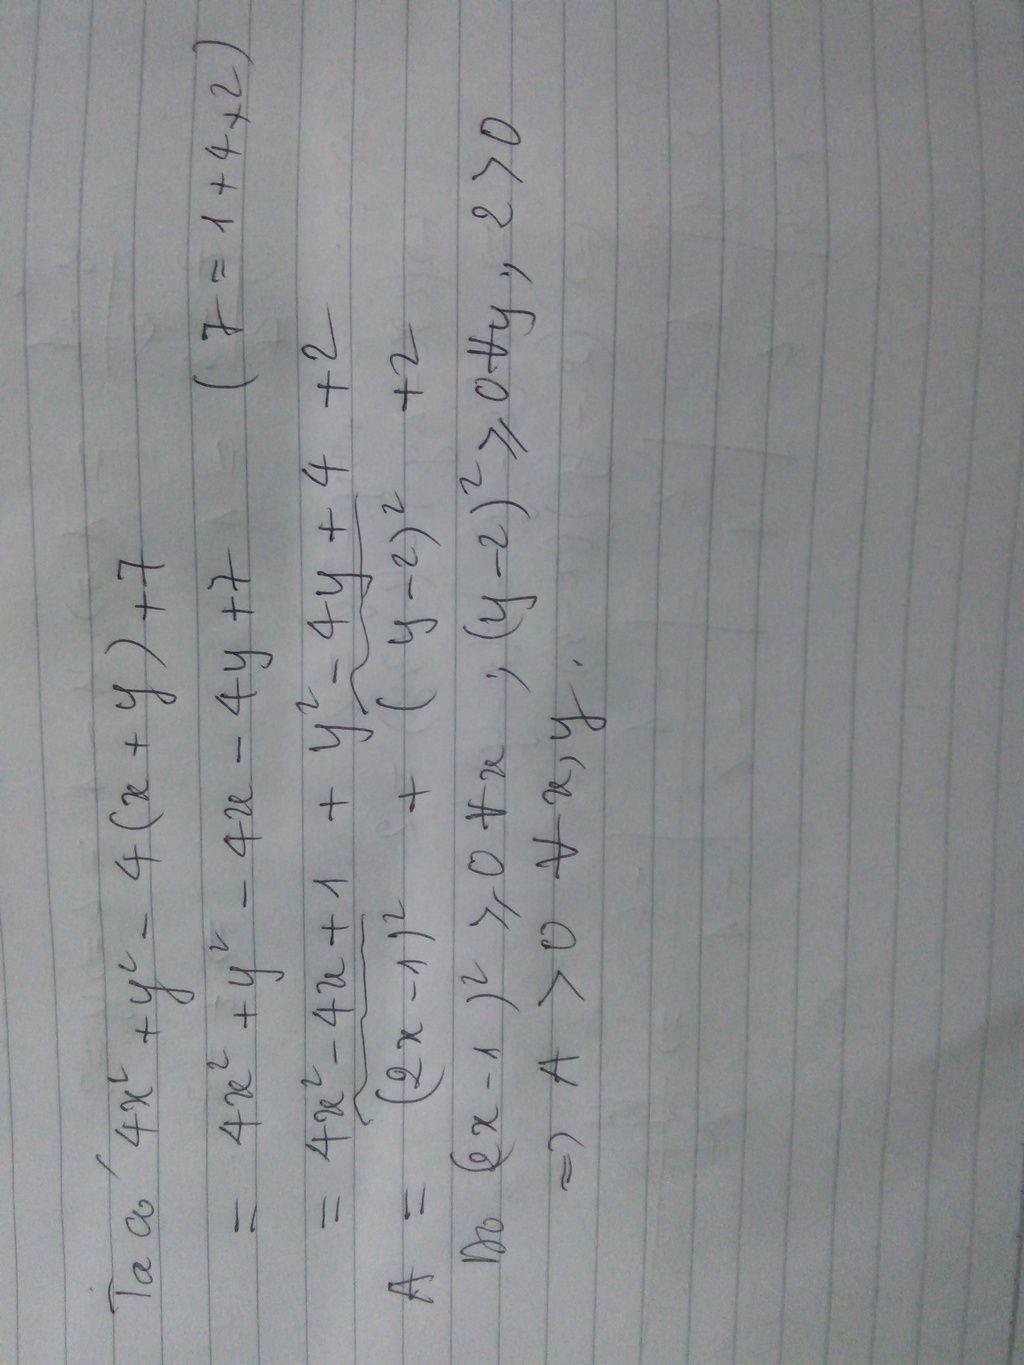 Ta có 4x² + y² - 4(x + y) + 7
= 4x² + y² - 4x - 4y + 7 (7 = 1 + 4 + 2)
= 4x² - 4x + 1 + y² - 4y + 4 + 2
A = (2x - 1)² + (y - 2)² + 2
Do (2x - 1)² ⩾ 0 ∀x, (y - 2)² ⩾ 0 ∀y, 2 > 0
=> A > 0 ∀x, y.